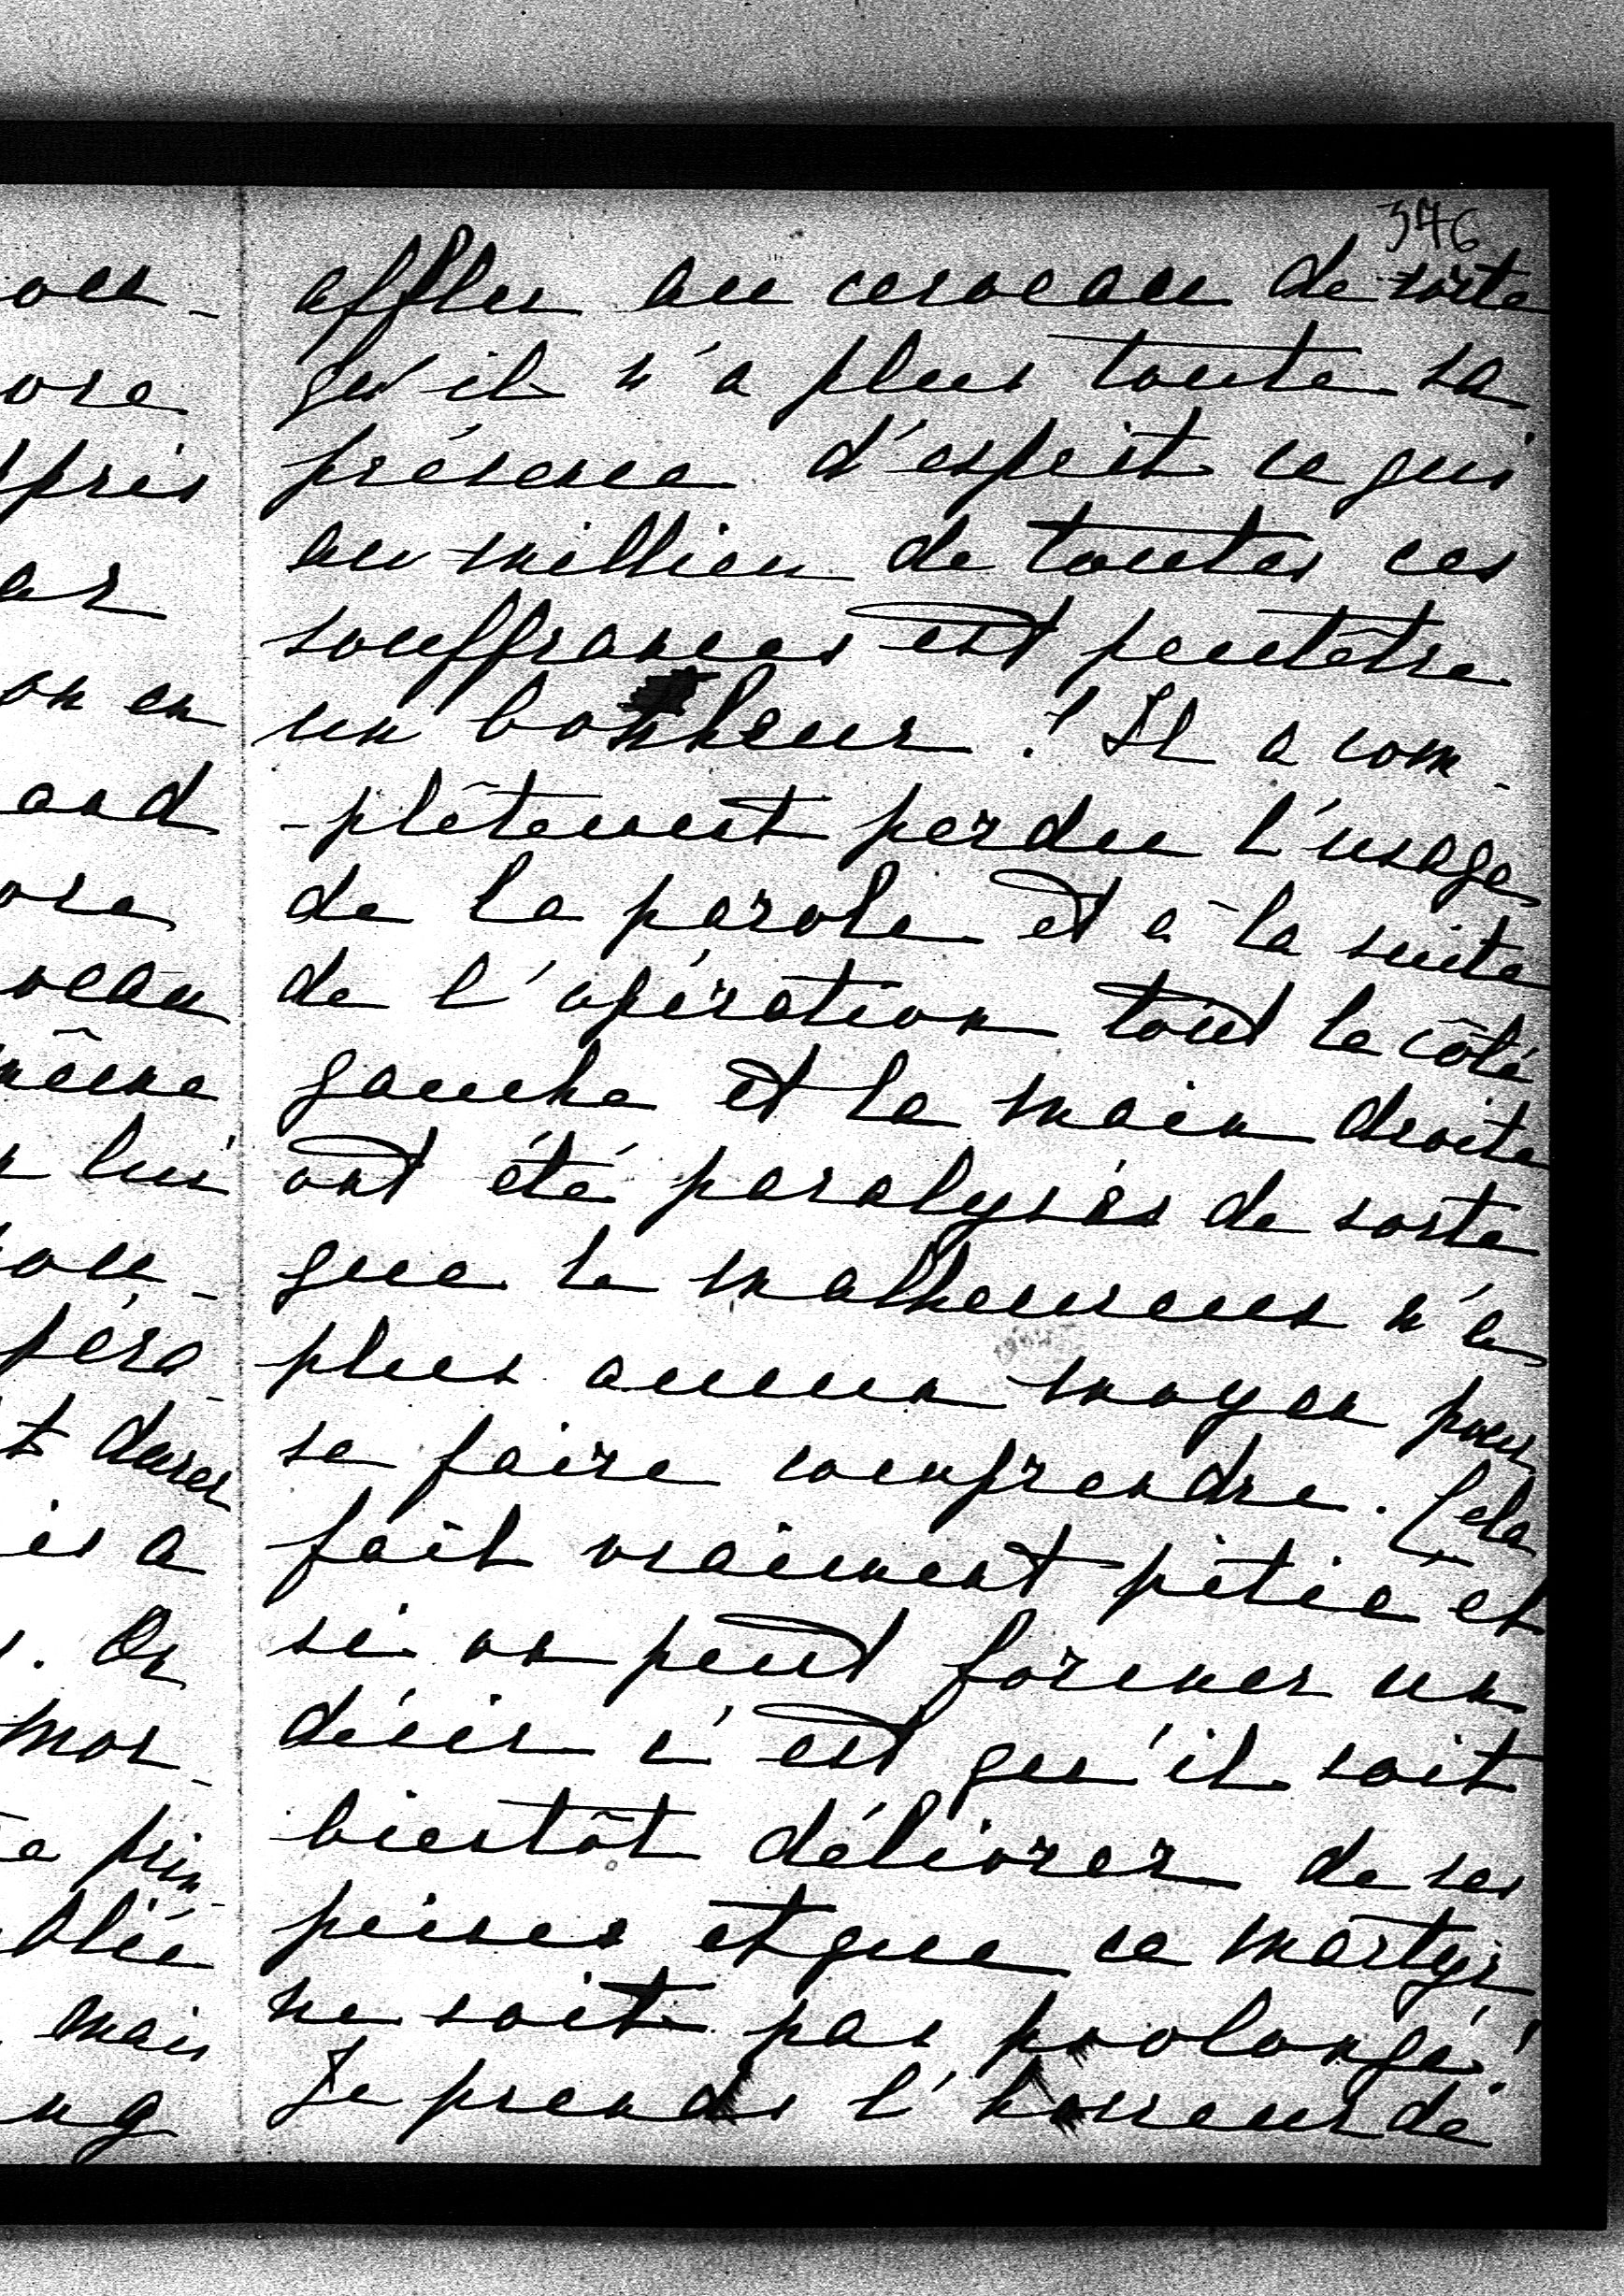 346
ou-
ore
près
ar
on en
and
ore
veau
même
lui
ou-
péra-
t durer
is a
. On
mor-
prin-
bliée
mais
ng
afflu au cerveau de sorte
qu'il n'a plus toute sa
présence d'esprit ce qui
au millieu de toutes ces
souffrances est peutêtre
un bonheur ! Il a com-
-plêtement perdu l'usage
de la parole et à la suite
de l'opération tout le côté
gauche et la main droite
ont été paralysés de sorte
que le malheureux n'a
plus aucun moyen pour
se faire comprendre. Cela
fait vraiment pitié et
si on peut former un
désir c'est qu'il soit
bientôt délivrer de ses
peines et que ce martyr
ne soit pas prolongé!
Je prends l'horreur de